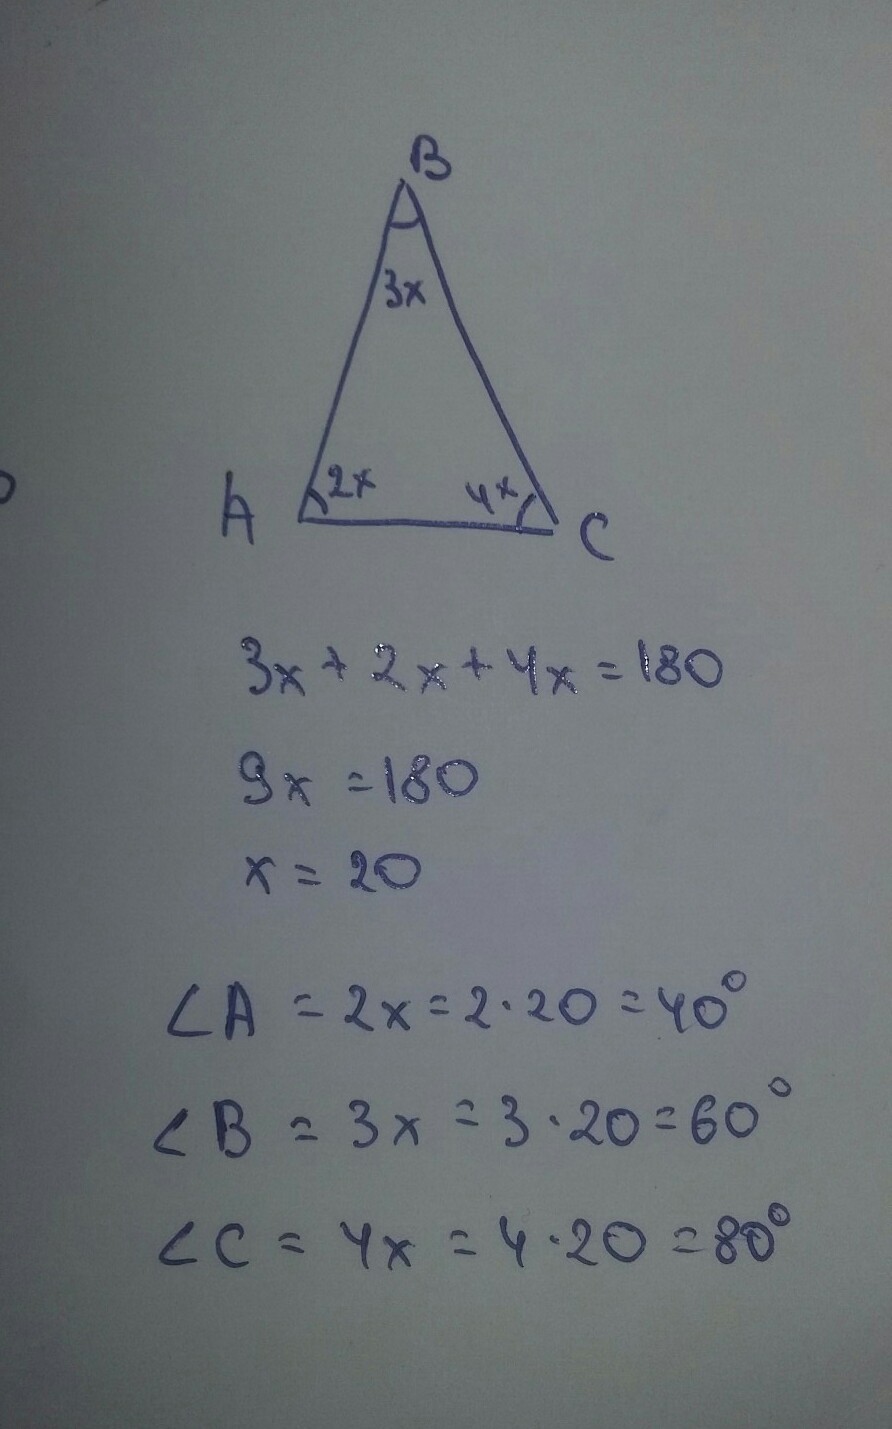 B
3x
A 2x 4x C
3x + 2x + 4x = 180
9x = 180
x = 20
∠A = 2x = 2·20 = 40°
∠B = 3x = 3·20 = 60°
∠C = 4x = 4·20 = 80°